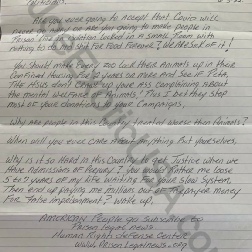 Are you ever going to accept that Covid will
never go or are you going to make people in
Prison live in locked in a small room with
nothing to do and shit for Food Forever? We are sick of it!
You should make every zoo lock their animals up in their
Confined Housing For 2 years or more and see if Peta,
the ASPCA don't crawl up your ass complaining about
the Mental Welfare of Animals! Plus I bet they stop
most of your donations to your campaigns.
Why are people in this country treated worse than Animals?
When will you ever care about anything But yourselves.
Why is it so Hard in this Country to get Justice when we
Have Admissions of Perjury? I you would Rather me loose
5 years of my life Waiting on your slow System.
Then end up paying me Millions out of Taxpayer money
For False imprisonment? Wake up.
American People go subscribe to
Prison Legal news
Human Rights Defense Center
www.Prisonlegalnews.org